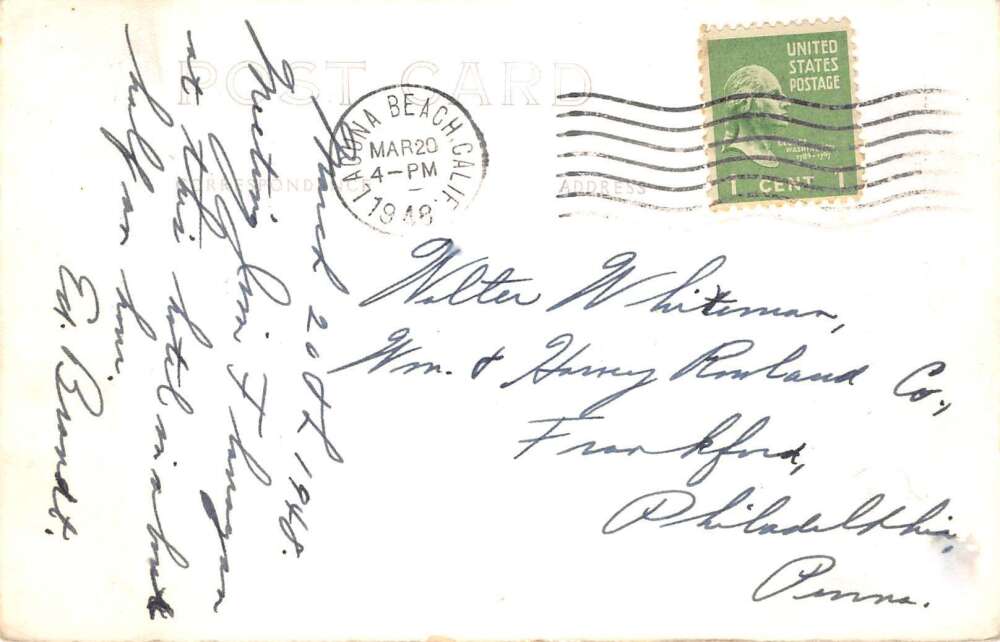 POST CARD
CORRESPONDENCE
ADDRESS
LAGUNA BEACH, CALIF.
MAR 20
4-PM
1948
UNITED
STATES
POSTAGE
GEORGE
WASHINGTON
1789-1797
1 CENT 1
March 20th 1948.
Meeting Glenn F
at this hotel in about
half an hour.
Ed. Brandt.
Walter Whiteman,
Wm. & Harvey Rowland Co.,
Frankford,
Philadelphia,
Penna.